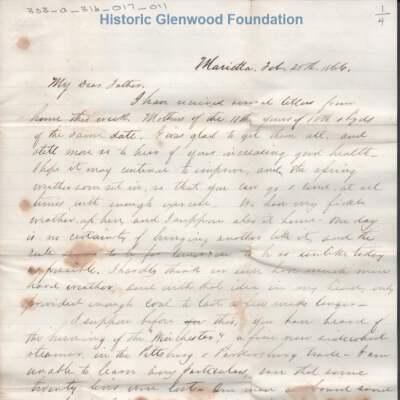 353-a-316-017-011
Historic Glenwood Foundation
1/4
Marietta, Feb. 25th, 1866.
My Dear Father,
I have received several letters from
home this week. Mothers of the 11th, yours of 18th &
of the same date. I was glad to get them all, and
still more so to hear of your increasing good health.
I hope it may continue to improve, and the spring
weather soon set in, so that you can go & come at all
times with enough exercise. We have very fickle
weather up here, and I suppose also at home. One day
is no certainty of bringing another like it, and the
rule to be for tomorrow to be as unlike today
as possible. I hardly think we will have much more
hard weather, and with that idea in my head, only
provided enough coal to last a few weeks longer.
I suppose before this, you have heard of
the burning of the "Winchester" a fine new sidewheel
steamer, in the Pittsburg & Parkersburg trade. I am
unable to learn any particulars, and some
twenty lives were lost. One man on board some